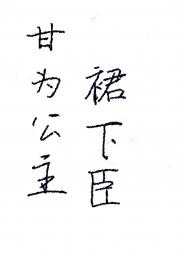 甘为公主
裙下臣